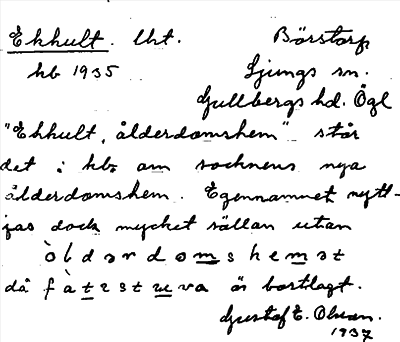 Ekhult. lht. Börstorp
hb 1935 Ljungs sn.
Gullbergs hd. Ögl
"Ekhult, ålderdomshem" står
det i hb. om socknens nya
ålderdomshem. Egennamnet nytt-
jas dock mycket sällan utan
òldərdomshemət
då fàtzstuva är bortlagt.
Gustaf E. Olsson.
1937